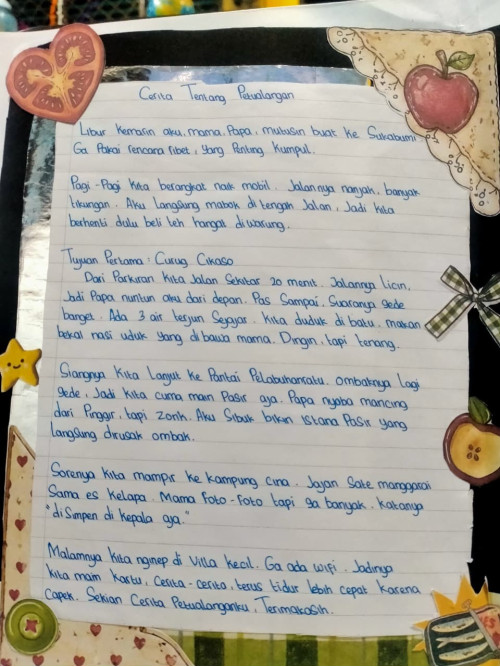 Cerita Tentang Petualangan
Libur kemarin aku, mama, Papa, mutusin buat ke Sukabumi
Ga Pakai rencana ribet, yang Penting kumpul.
Pagi-Pagi kita berangkat naik mobil. Jalannya nanjak, banyak
tikungan. Aku langsung mabok di tengah Jalan, Jadi kita
berhenti dulu beli teh hangat di warung.
Tujuan Pertama: Curug Cikaso
Dari Parkiran kita Jalan Sekitar 20 menit. Jalannya Licin,
Jadi Papa nuntun aku dari depan. Pas Sampai, Suaranya gede
banget. Ada 3 air terjun Sejajar. Kita duduk di batu, makan
bekal nasi uduk yang dibawa mama. Dingin, tapi tenang.
Siangnya kita Lanjut ke Pantai Pelabuhanratu. Ombaknya Lagi
gede, Jadi kita cuma main Pasir aja. Papa nyoba mancing
dari Pinggir, tapi zonk. Aku Sibuk bikin istana Pasir yang
langsung dirusak ombak.
Sorenya kita mampir ke kampung cina. Jajan Sate manggarai
Sama es kelapa. Mama foto-foto tapi ga banyak. Katanya
"disimpen di kepala aja."
Malamnya kita nginep di Villa kecil. Ga ada wifi. Jadinya
kita main kartu, cerita-cerita, terus tidur lebih cepat karena
capek. Sekian Cerita Petualanganku, Terimakasih.